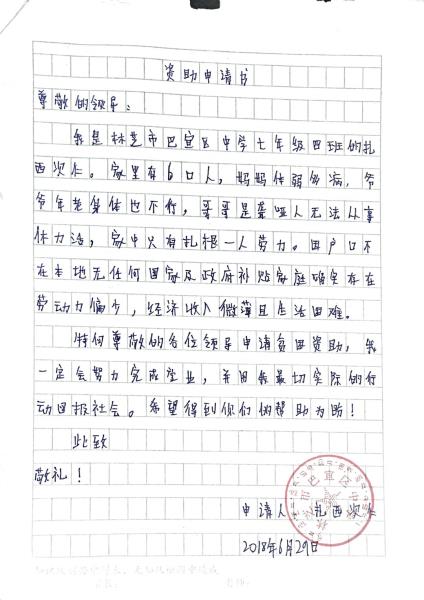 资助申请书
尊敬的领导：
我是林芝市巴宜区中学七年级四班的扎
西次仁。家里有6口人，妈妈体弱多病，爷
爷年老身体也不行，哥哥是聋哑人无法从事
体力活，家中只有扎根一人劳力。因户口不
在本地无任何国家及政府补贴家庭确实存在
劳动力偏少，经济收入微薄且生活困难。
特向尊敬的各位领导申请贫困资助，我
一定会努力完成学业，并用我最切实际的行
动回报社会。希望得到你们的帮助为盼！
此致
敬礼！
申请人：扎西次仁
2018年6月29日